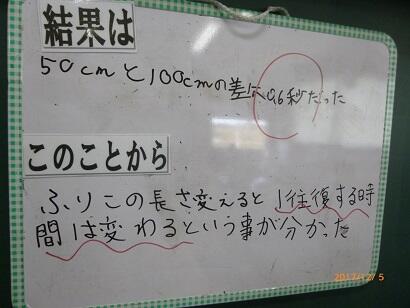 結果は
50cmと100cmの差は0.6秒だった
このことから
ふりこの長さ変えると1往復する時
間は変わるという事が分かった
2017/12/5